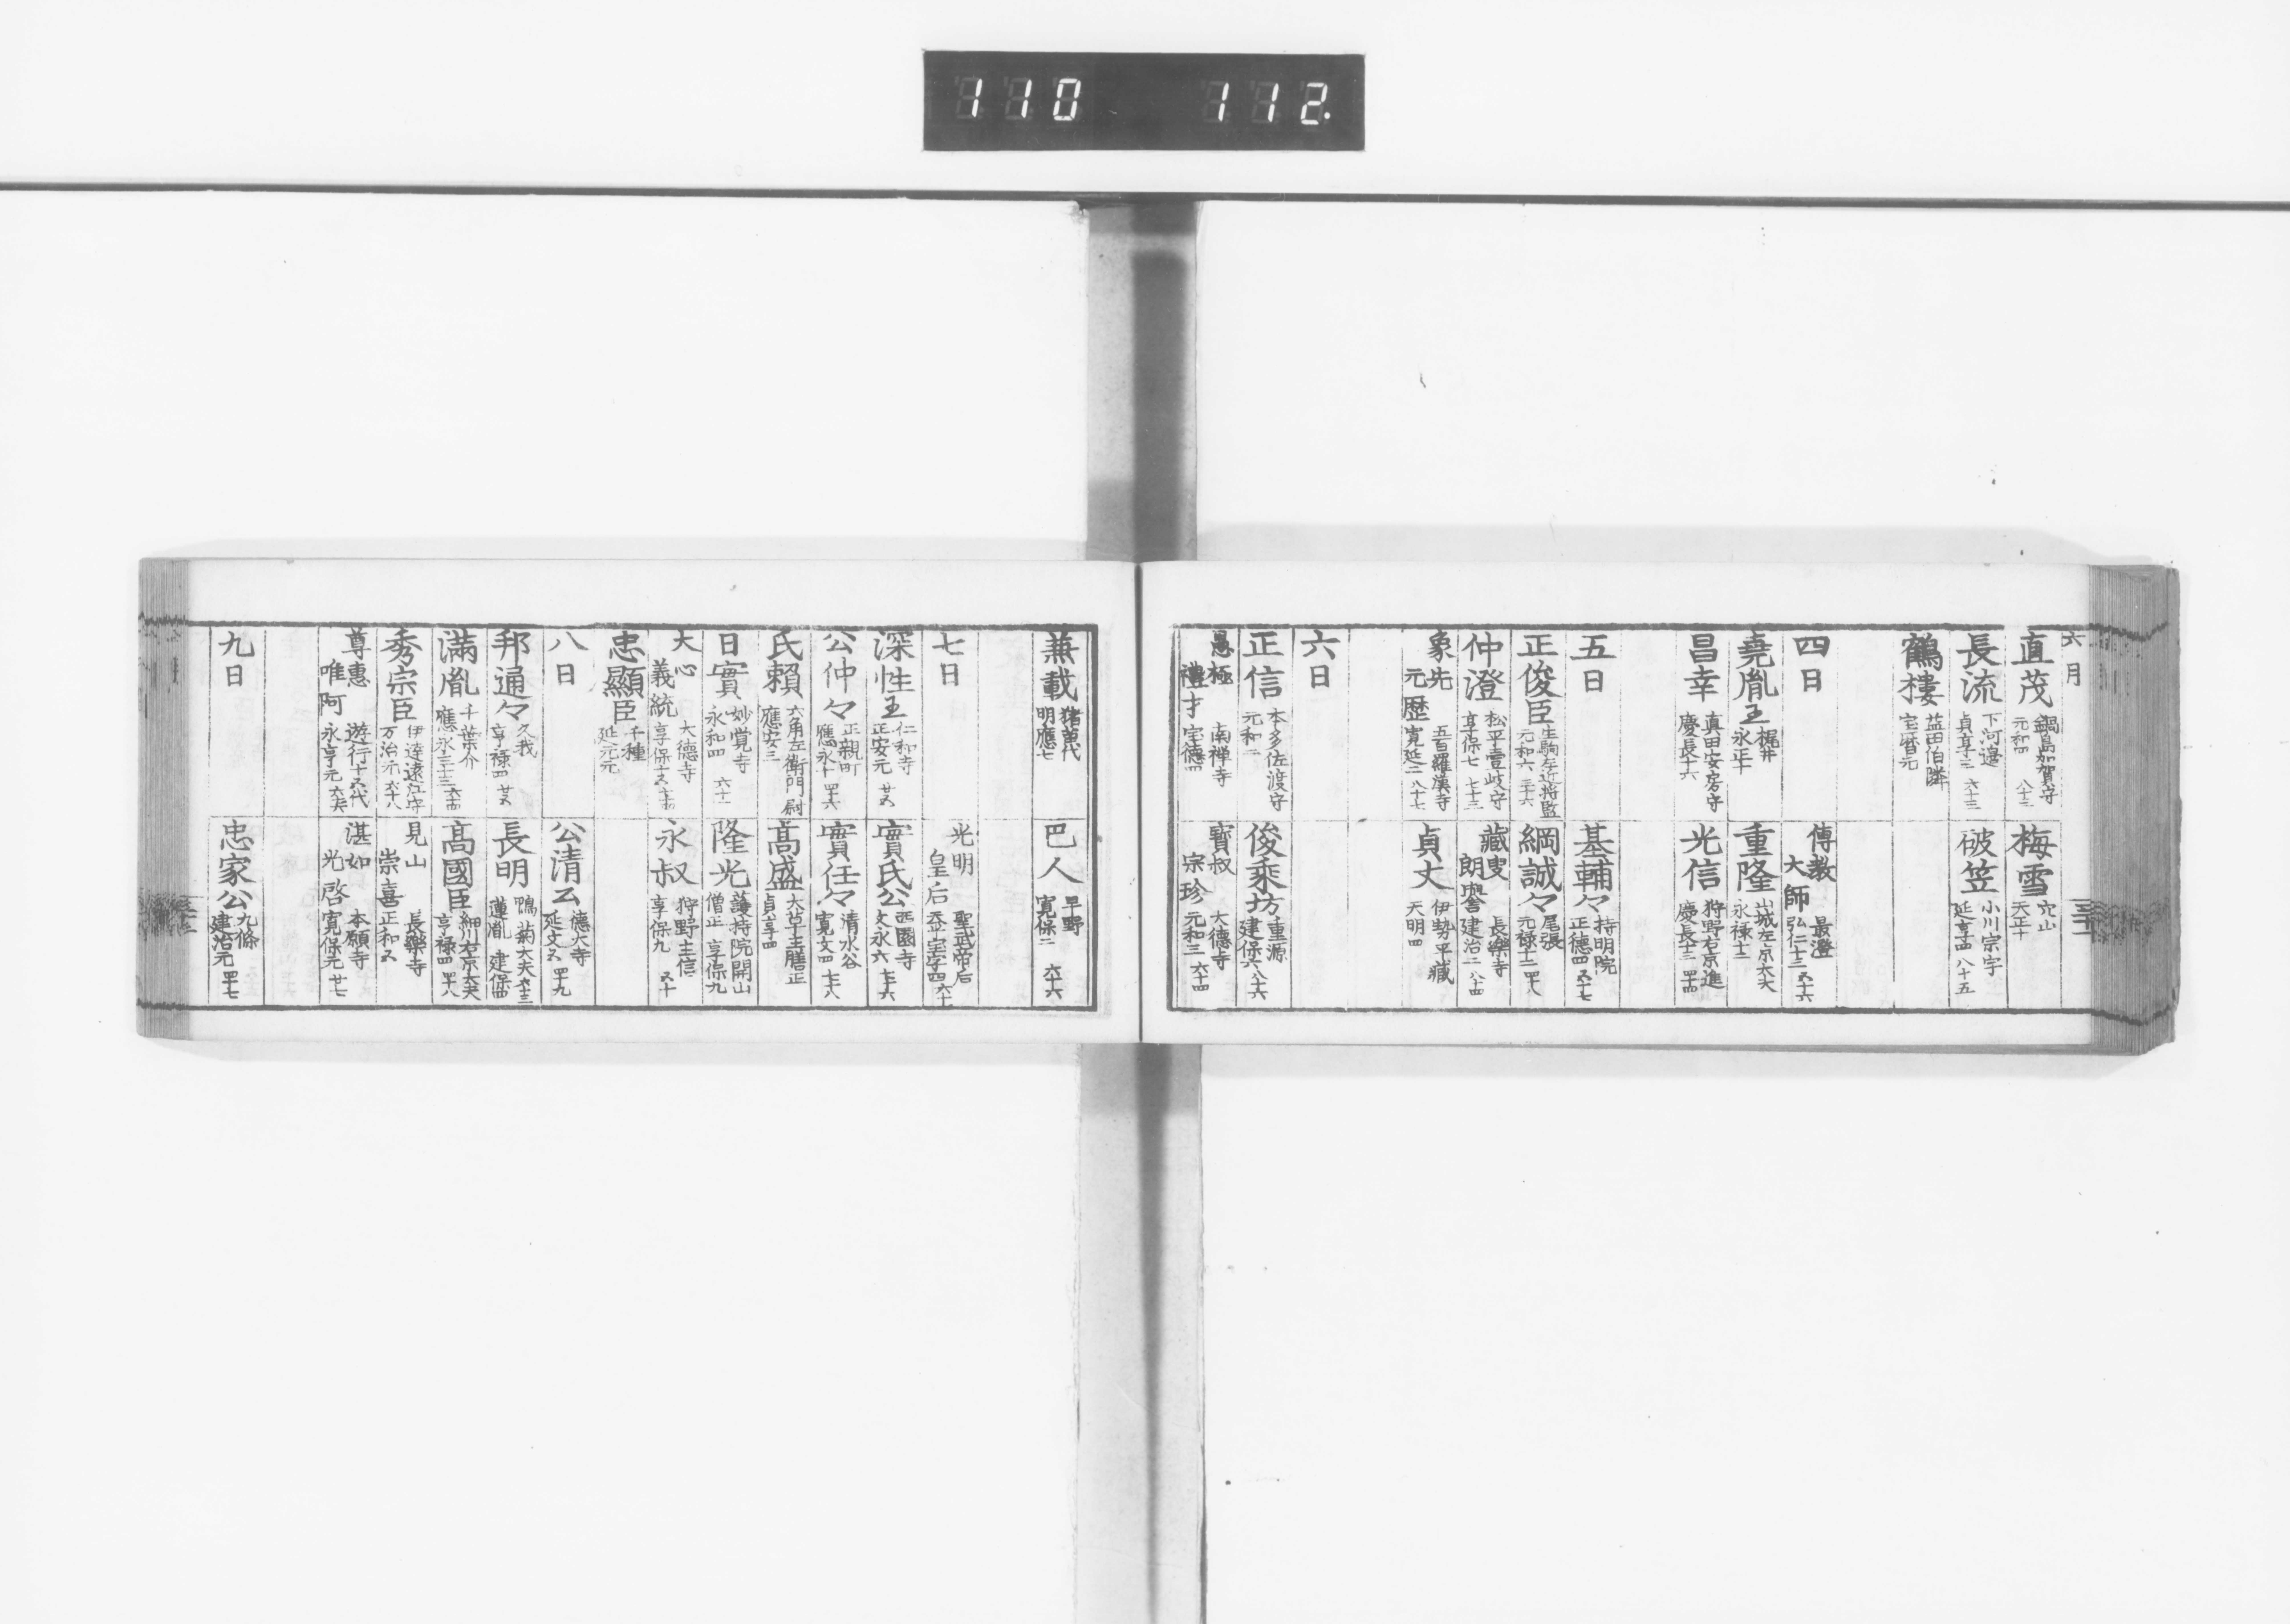 110 112.
六月
直茂 鍋島加賀守 元和四 八十三
梅雪 穴山 天正十
長流 下河邉 貞享三 六十三
破笠 小川宗宇 延享四 八十五
鶴樓 益田伯隣 宝暦元
四日
傳教大師 最澄 弘仁十三 五十六
堯胤王 梶井 永正十
重隆 山城左京大夫 永禄十二
昌幸 真田安房守 慶長十六
光信 狩野右京進 慶長十三 四十四
五日
基輔々 持明院 正德四 五十七
正俊臣 生駒左近将監 元和六 三十六
綱誠々 尾張 元禄十二 四十八
仲澄 松平壹岐守 享保七 七十三
藏叟朗譽 長樂寺 建治二 八十四
象先元歴 五百羅漢寺 寛延二 八十七
貞丈 伊勢平藏 天明四
六日
正信 本多佐渡守 元和二
俊乘坊 重源 建保六 八十六
愚極禮才 南禅寺 宝德四
寶叔宗珍 大德寺 元和三 六十四
兼載 猪苗代 明應七
巴人 早野 寛保二 六十六
七日
光明皇后 聖武帝后 天平宝字四 六十
深性王 仁和寺 正安元 廿五
實氏公 西園寺 文永六 七十六
公仲々 正親町 應永十 四十六
實任々 清水谷 寛文四 七十八
氏頼 六角左衛門尉 應安三
高盛 大草主膳正 貞享四
日實 妙覚寺 永和四 六十一
隆光 護持院開山 僧正 享保九
大心義統 大德寺 享保十五 七十四
永叔 狩野主信 享保九 五十
忠顯臣 千種 延元元
八日
公清公 德大寺 延文五 四十九
邦通々 久我 享禄四 廿五
長明 鴨菊大夫 蓮胤 建保四 六十三
滿胤 千葉介 應永三十三 六十四
高國臣 細川右京大夫 享禄四 四十八
秀宗臣 伊達遠江守 万治元 六十八
見山崇喜 長樂寺 正和五
尊惠唯阿 遊行十五代 永享元 六十六
湛如光啓 本願寺 寛保元 廿七
九日
忠家公 九條 建治元 四十七